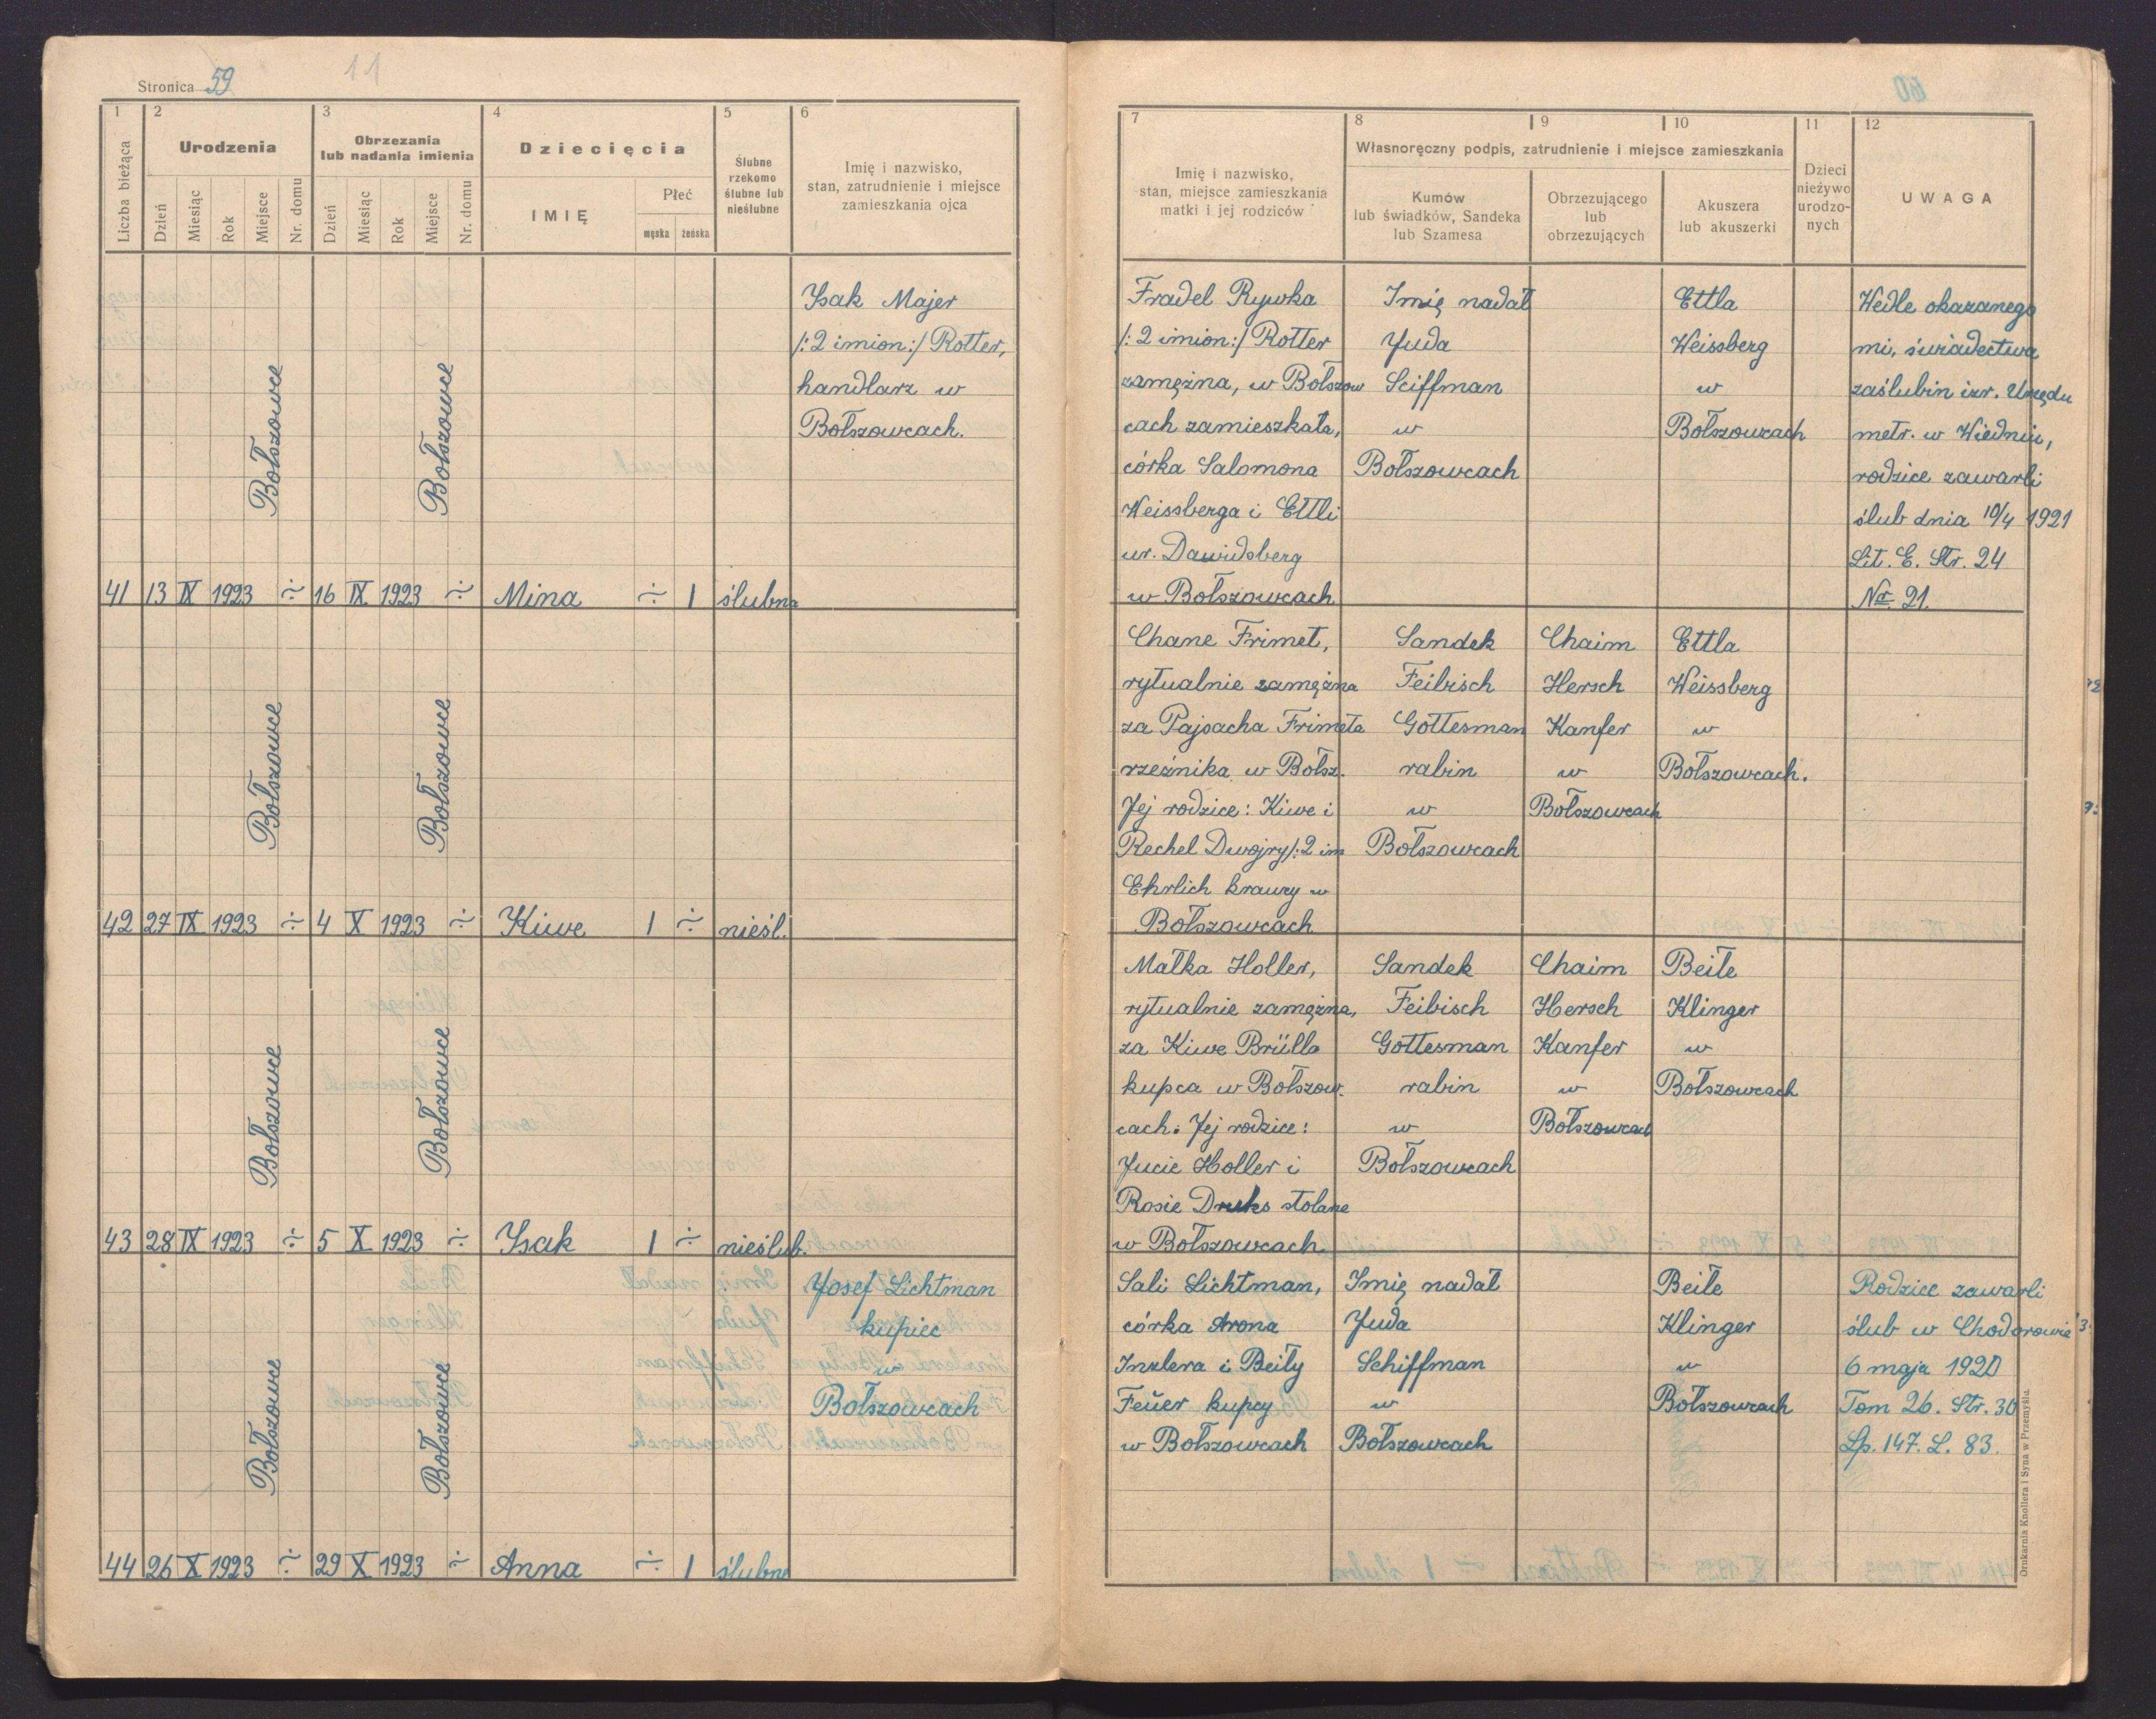 Stronica 59
11
1
2
3
4
5
6
Liczba bieżąca
Urodzenia
Obrzezania
lub nadania imienia
Dziecięcia
Ślubne
rzekomo
ślubne lub
nieślubne
Imię i nazwisko,
stan, zatrudnienie i miejsce
zamieszkania ojca
Dzień
Miesiąc
Rok
Miejsce
Nr. domu
Dzień
Miesiąc
Rok
Miejsce
Nr. domu
IMIĘ
Płeć
męska
żeńska
Isak Majer
/:2 imion:/ Rotter,
handlarz w
Bołszowcach.
Bołszowce
Bołszowce
41 13 IX 1923 ÷ 16 IX 1923 ÷ Mina ÷ 1 ślubna
Bołszowce
Bołszowce
42 27 IX 1923 ÷ 4 X 1923 ÷ Kiwe 1 ÷ nieśl.
Bołszowce
Bołszowce
43 28 IX 1923 ÷ 5 X 1923 ÷ Isak 1 ÷ nieślub.
Josef Lichtman
kupiec
w
Bołszowcach
Bołszowce
Bołszowce
44 26 X 1923 ÷ 29 X 1923 ÷ Anna ÷ 1 ślubne
60
7
8
9
10
11
12
Imię i nazwisko,
stan, miejsce zamieszkania
matki i jej rodziców
Własnoręczny podpis, zatrudnienie i miejsce zamieszkania
Kumów
lub świadków, Sandeka
lub Szamesa
Obrzezującego
lub
obrzezujących
Akuszera
lub akuszerki
Dzieci
nieżywo
urodzo-
nych
UWAGA
Fradel Rywka
/:2 imion:/ Rotter
zamężna, w Bołszow
cach zamieszkała,
córka Salomona
Weissberga i Ettli
ur. Dawidsberg
w Bołszowcach
Imię nadał
Juda
Sciffman
w
Bołszowcach
Ettla
Weissberg
w
Bołszowcach
Wedle okazanego
mi, świadectwa
zaślubin izr. Urzędu
metr. w Wiedniu,
rodzice zawarli
ślub dnia 10/4 1921
Lit. E. Str. 24
Nr. 21.
Chane Frimet,
rytualnie zamężna
za Pajsacha Frimeta
rzeźnika w Bołsz.
Jej rodzice: Kiwe i
Rechel Dwojry/:2 im
Ehrlich krawcy w
Bołszowcach
Sandek
Feibisch
Gottesman
rabin
w
Bołszowcach
Chaim
Hersch
Kanfer
w
Bołszowcach
Ettla
Weissberg
w
Bołszowcach.
Małka Holler,
rytualnie zamężna,
za Kiwe Brülla
kupca w Bołszow.
cach. Jej rodzice:
Jucie Holler i
Rosie Druks stolarze
w Bołszowcach
Sandek
Feibisch
Gottesman
rabin
w
Bołszowcach
Chaim
Hersch
Kanfer
w
Bołszowcach
Beile
Klinger
w
Bołszowcach
Sali Lichtman,
córka Arona
Inzlera i Beily
Feuer kupcy
w Bołszowcach
Imię nadał
Juda
Schiffman
w
Bołszowcach
Beile
Klinger
w
Bołszowcach
Rodzice zawarli
ślub w Chodorowie
6 maja 1920
Tom 26. Str. 30
Lp. 147. L. 83.
Drukarnia Knollera i Syna w Przemyślu.